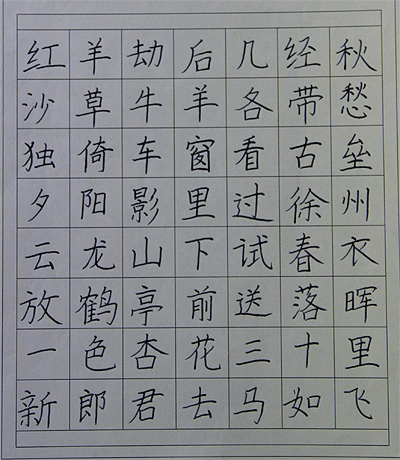 红羊劫后几经秋
沙草牛羊各带愁
独倚车窗看古垒
夕阳影里过徐州
云龙山下试春衣
放鹤亭前送落晖
一色杏花三十里
新郎君去马如飞